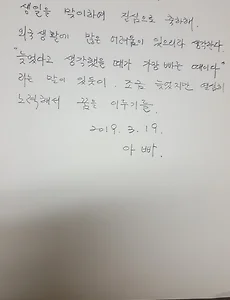 생일을 맞이하여 진심으로 축하해.
외국생활에 많은 어려움이 있으리라 생각한다
"늦었다고 생각했을때가 가장 빠른 때이다"
라는 말이 있듯이. 조금 늦었지만 열심히
노력해서 꿈을 이루기를.
2019. 3. 19.
아빠.